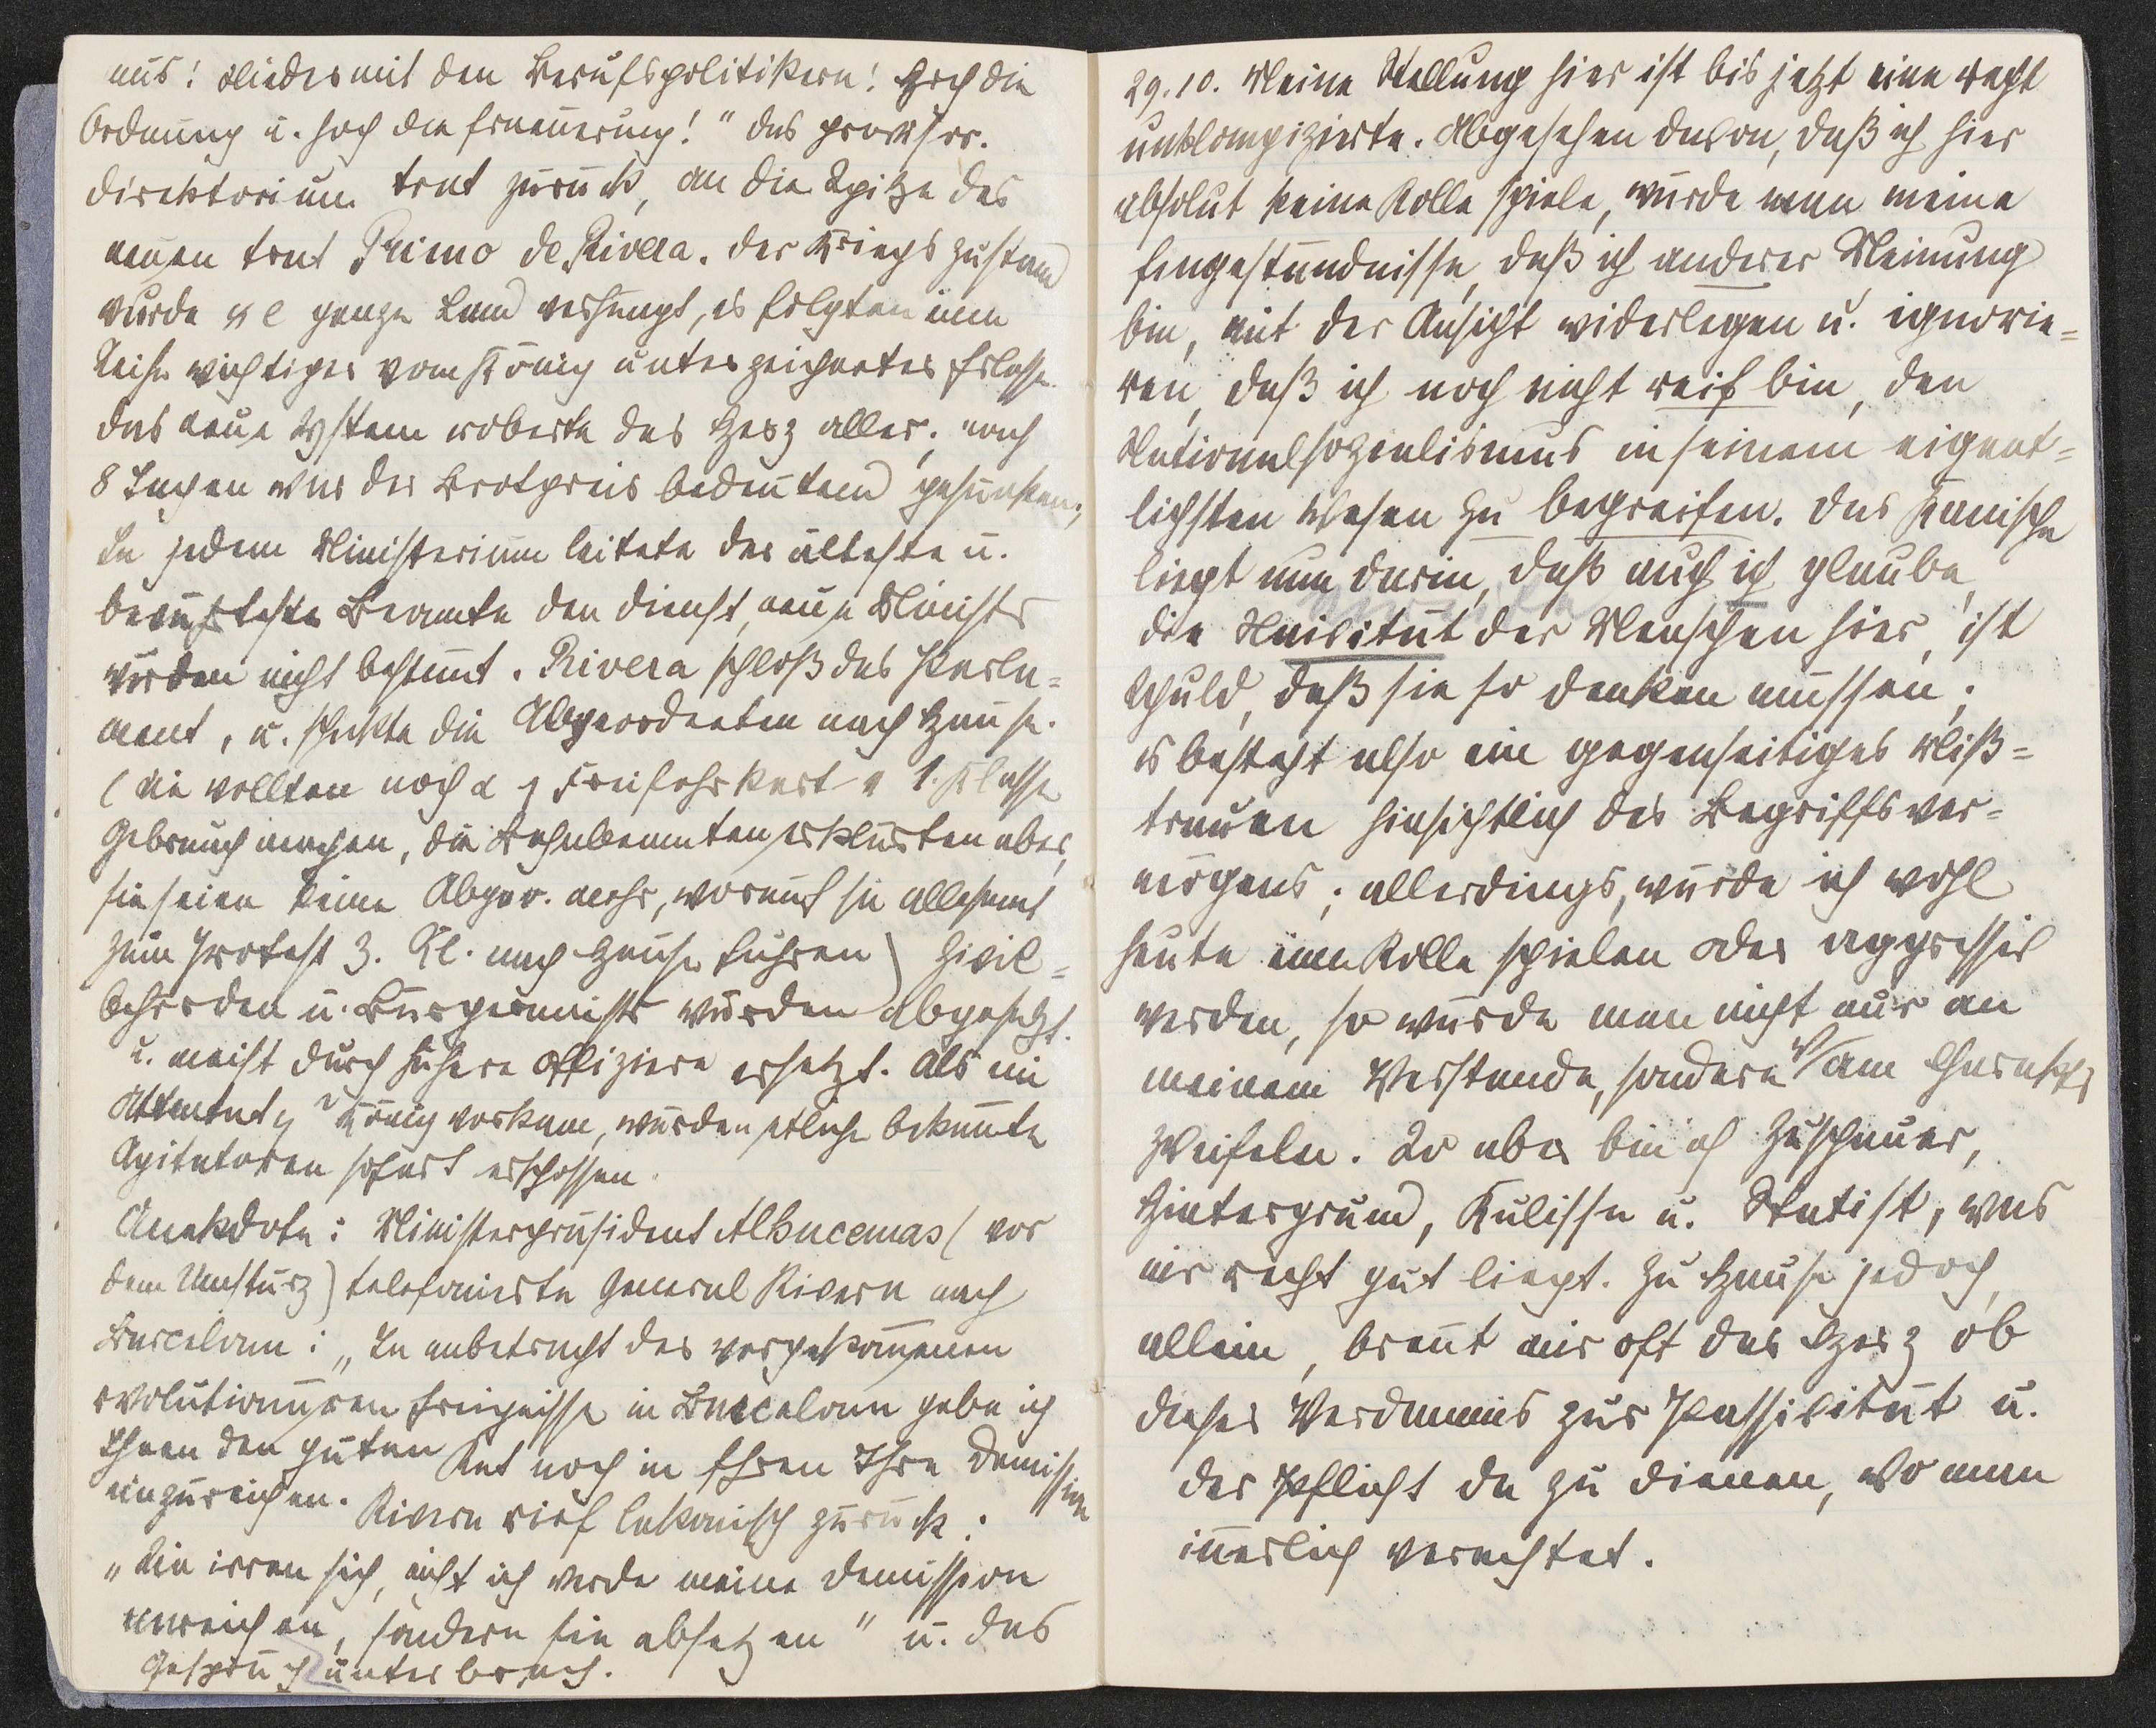 aus! Nieder mit den Berufspolitikern! Hoch die
Ordnung u. hoch die Erneuerung!" das provisor.
Direktorium trat zurück, an die Spitze des
neuen trat Primo de Rivera. Der Kriegszustand
wurde ganze Land verhängt, es folgten eine
Reihe wichtiger vom König unterzeichneter Erlasse.
Das neue System eroberte das Herz aller; nach
8 Tagen war der Brotpreis bedeutend gesunken;
In jedem Ministerium leitete der älteste u.
Beamte den Dienst, neue Minister
wurden nicht bestimt. Rivera schloß das Parla=
ment, u. schickte die Abgeordneten nach Hause.
(die wollten noch Freifahrkart 1. Klasse
Gebrauch machen, die Bahnbeamten erklärten aber,
sie seien keine Abgeo. mehr, worauf sie allesamt
zum Protest 3. Kl. nach Hause fuhren) Zivil=
behörden u. Bürgermeister wurden abgesetzt.
u. meist durch höhere Offiziere ersetzt. Als ein
Attentat König vorkam, wurden etliche bekannte
Agitatoren sofort erschossen.
Anekdote: Ministerpräsident Alhucemas (vor
dem Umsturz) telefonierte General Rivera nach
Barcelona: „In anbetracht der vorgekommenen
revolutionären Ereignisse in Barcelona gebe ich
Ihnen den guten Rat noch in Ehren Ihre Demission
einzureichen. Rivera rief lakonisch zurück:
„Sie irren sich, nicht ich werde meine Demission
einreichen, sondern sie absetzen" u. das
Gespräch unterbrach.
29.10. Meine Stellung hier ist bis jetzt eine recht
unkomplizierte. Abgesehen davon, daß ich hier
absolut keine Rolle spiele, würde man meine
Eingeständnisse, daß ich anderer Meinung
bin, mit der Ansicht widerlegen u. ignorie=
ren, daß ich noch nicht reif bin, den
Nationalsozialismus in seinem eigent=
lichsten Wesen zu begreifen. Das Komische
liegt nun darin, daß auch ich glaube,
die Naivität der Menschen hier, ist
Schuld, daß sie so denken müssen;
es besteht also ein gegenseitiges Miß=
trauen hinsichtlich des Begriffsver=
mögens; allerdings, würde ich wohl
heute eine Rolle spielen oder aggressiv
werden, so würde man nicht nur an
meinem Verstande, sondern am Charakter
zweifeln. So aber bin ich Zuschauer,
Hintergrund, Kulisse u. Statist, was
mir recht gut liegt. Zu Hause jedoch,
allein, brennt mir oft das Herz ob
dieser Verdammnis zur Passivität u.
der Pflicht da zu dienen, wo man
innerlich verachtet.